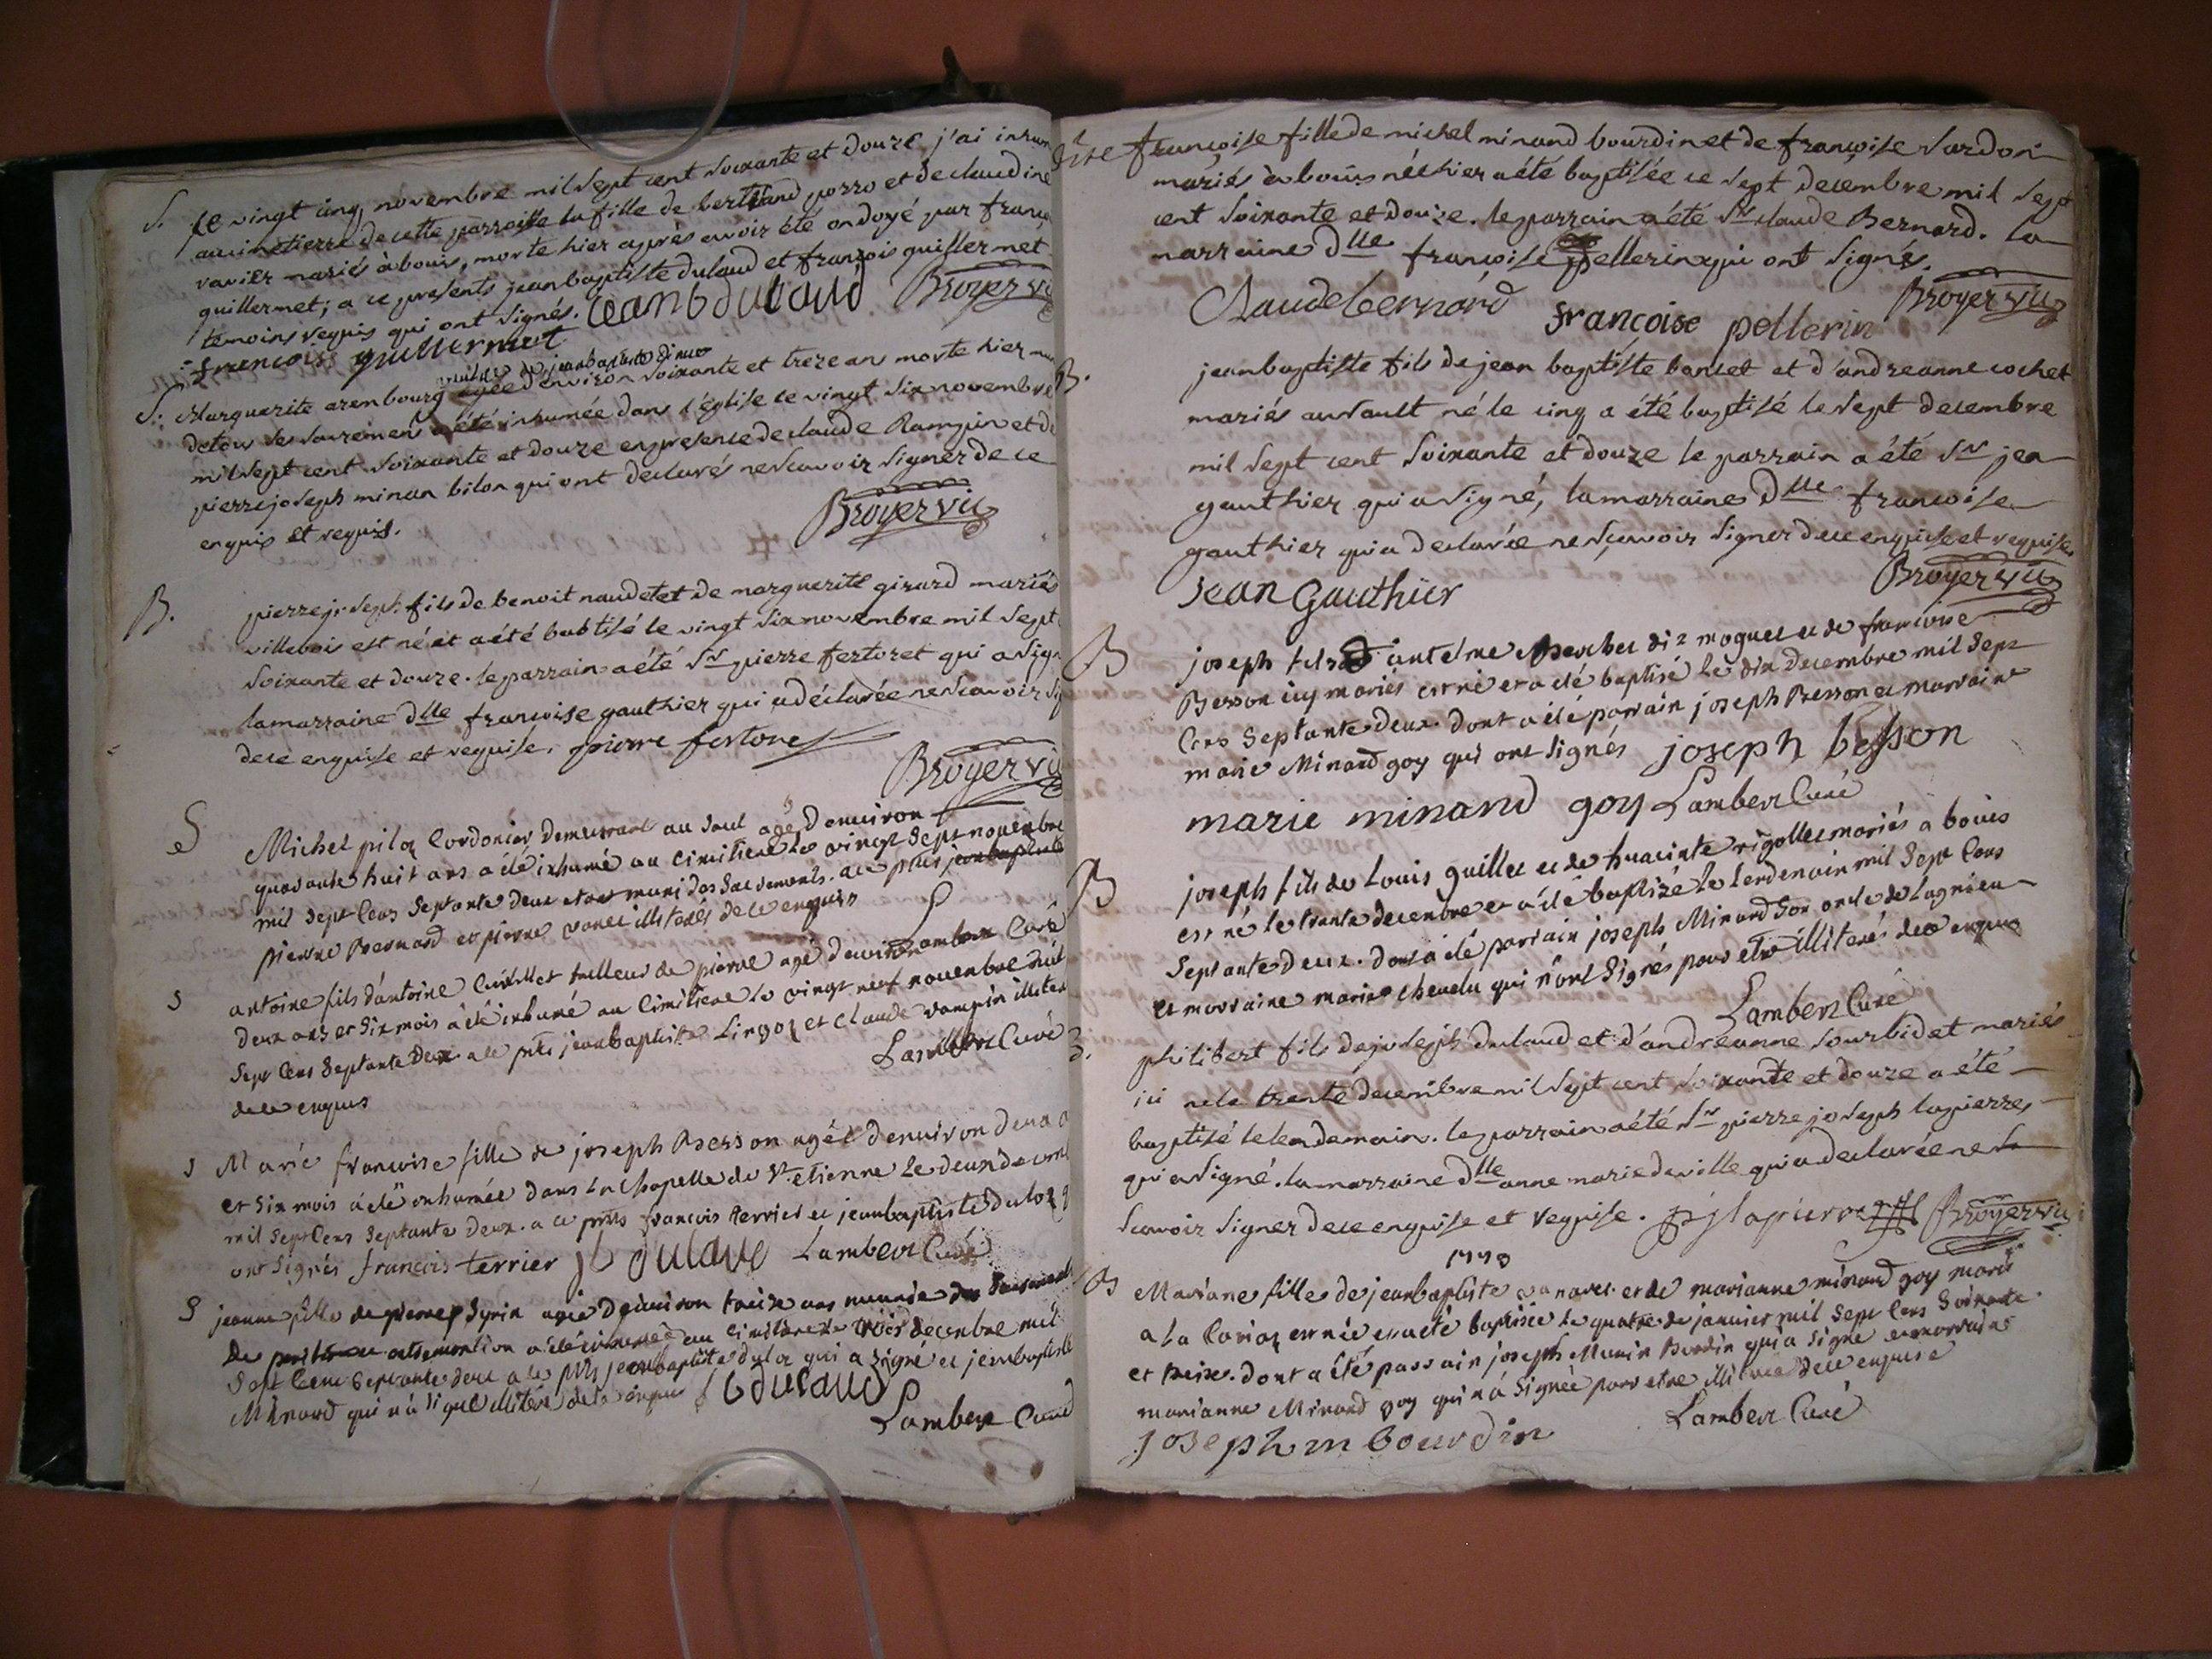 S. le vingt cinq novembre mil sept cent soixante et douze j'ai inhum
au cimetierre de cette parroisse la fille de bertrand porro et de claudine
ravier mariés à bouis, morte hier après avoir été ondoyé par franç
guillermet; a ce presents jean baptiste dulaud et françois guillermet
temoins requis qui ont signés. jean b dulaud Broyer vic
francois guillermet
veuve de jean baptiste
S. Marguerite arembourg agée d'environ soixante et treze an morte hier mu
de tou ses sacremens a été inhumée dans l'église ce vingt six novembre
mil sept cent soixante et douze en presence de claude Rampin et de
pierre joseph minan bilon qui ont declarés ne scavoir signer de ce
enquis et requis. Broyer vic
B. pierre joseph fils de benoit naudet et de marguerite girard mariés
villebois est né et a été babtisé le vingt six novembre mil sept
soixante et douze. le parrain a été Sr pierre fertoret qui a sign
la marraine dlle francoise gauthier qui a déclarée ne scavoir sig
de ce enquise et requise. pierre fertoret
Broyer vic
S Michel piloz Cordonier demeurant au saul agé denviron
quarante huit ans a été inhumé au cimitiere le vingt sept novembre
mil sept Cens Septante deux etant muni des Sacrements. a ce pnts jean baptiste
pierre Bernard et pierre vanel illiterés de ce enquis
Lambert Curé
S antoine fils d'antoine Cuillet tailleur de pierre agé denviron
deux ans et six mois a été inhumé au Cimitiere le vingt neuf novembre mil
Sept Cens Septante Deux. a ce pnts jean baptiste Lingoz et Claude rampin illiter
de ce enquis Lambert Curé
S Marie francoise fille de joseph Besson agée denviron deux a
et six mois a été inhumée dans la Chapelle de St etienne le deux decemb
mil Sept Cens Septante deux. a ce pnts francois terrier et jean baptiste duloz q
ont signés francois terrier jb dulaud Lambert Curé
S jeanne fille de pierre Syrin agée denviron treise ans munie des Sacrements
de penitence et extremontion a été inhumée au Cimitiere le trois decembre mil
Sept Cens Septante deux a ce pnts jean baptiste duloz qui a signé et jean baptiste
Minard qui n'a signé illiteré de ce enquis jb dulaud
Lambert Curé
francoise fille de michel minand bourdin et de francoise sardon
mariés à bouis née hier a été baptisée ce sept decembre mil sept
cent soixante et douze. le parrain a été Sr claude Bernard. la
marraine dlle francoise pellerin qui ont signés.
Claude bernard francoise pellerin Broyer vic
B. jean baptiste fils de jean baptiste bancet et d'andreanne cochet
mariés au sault né le cinq a été baptisé le sept decembre
mil sept cent soixante et douze le parrain a été Sr jea
gauthier qui a signé, la marraine dlle francoise
gauthier qui a declarée ne scavoir signer de ce enquise et requise.
jean Gauthier Broyer vic
B joseph fils d'antelme Berchet di moguet et de francoise
Besson icy mariés est né et a été baptisé le dix decembre mil sept
Cens Septante deux. dont a été parrain joseph Besson et marraine
marie Minard goy qui ont signés joseph besson
marie minand goy Lambert Curé
B joseph fils de Louis guillet et de huacinte rigollet mariés a bouis
est né le trante decembre et a été baptizé le lendemain mil Sept Cens
Septante deux. dont a été parrain joseph Minard son oncle de Lagnieu
et marraine marie chevelu qui n'ont signés pour etre illiterés de ce enquis
Lambert Curé
B. philibert fils de joseph dulaud et d'andreanne sourbidet mariés
ici né le trente decembre mil sept cent soixante et douze a été
baptisé le lendemain. le parrain a été Sr pierre joseph lapierre,
qui a signé. la marraine dlle anne marie deville qui a declarée ne
scavoir signer de ce enquise et requise. pjlapierre Broyer vic
1773
B Mariane fille de jean baptiste vanarel et de marianne minard goy mariés
a la Cariaz est née et a été baptisée le quatre de janvier mil sept Cens Soixante
et treize. dont a été parrain joseph Munin Bordin qui a signé et marraine
marianne Minard goy qui n'a signée pour etre illiterée de ce enquise
joseph m bourdin Lambert Curé